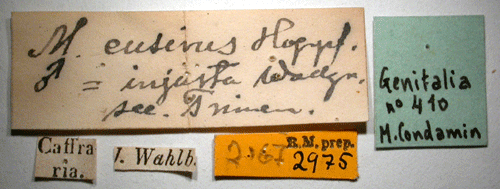 M. eusirus Hopff.
♂ = injusta Wallgr.
sec. Trimen.
Genitalia
no 410
M. Condamin
Caffra
ria.
J. Wahlb.
R.M. prep.
2975